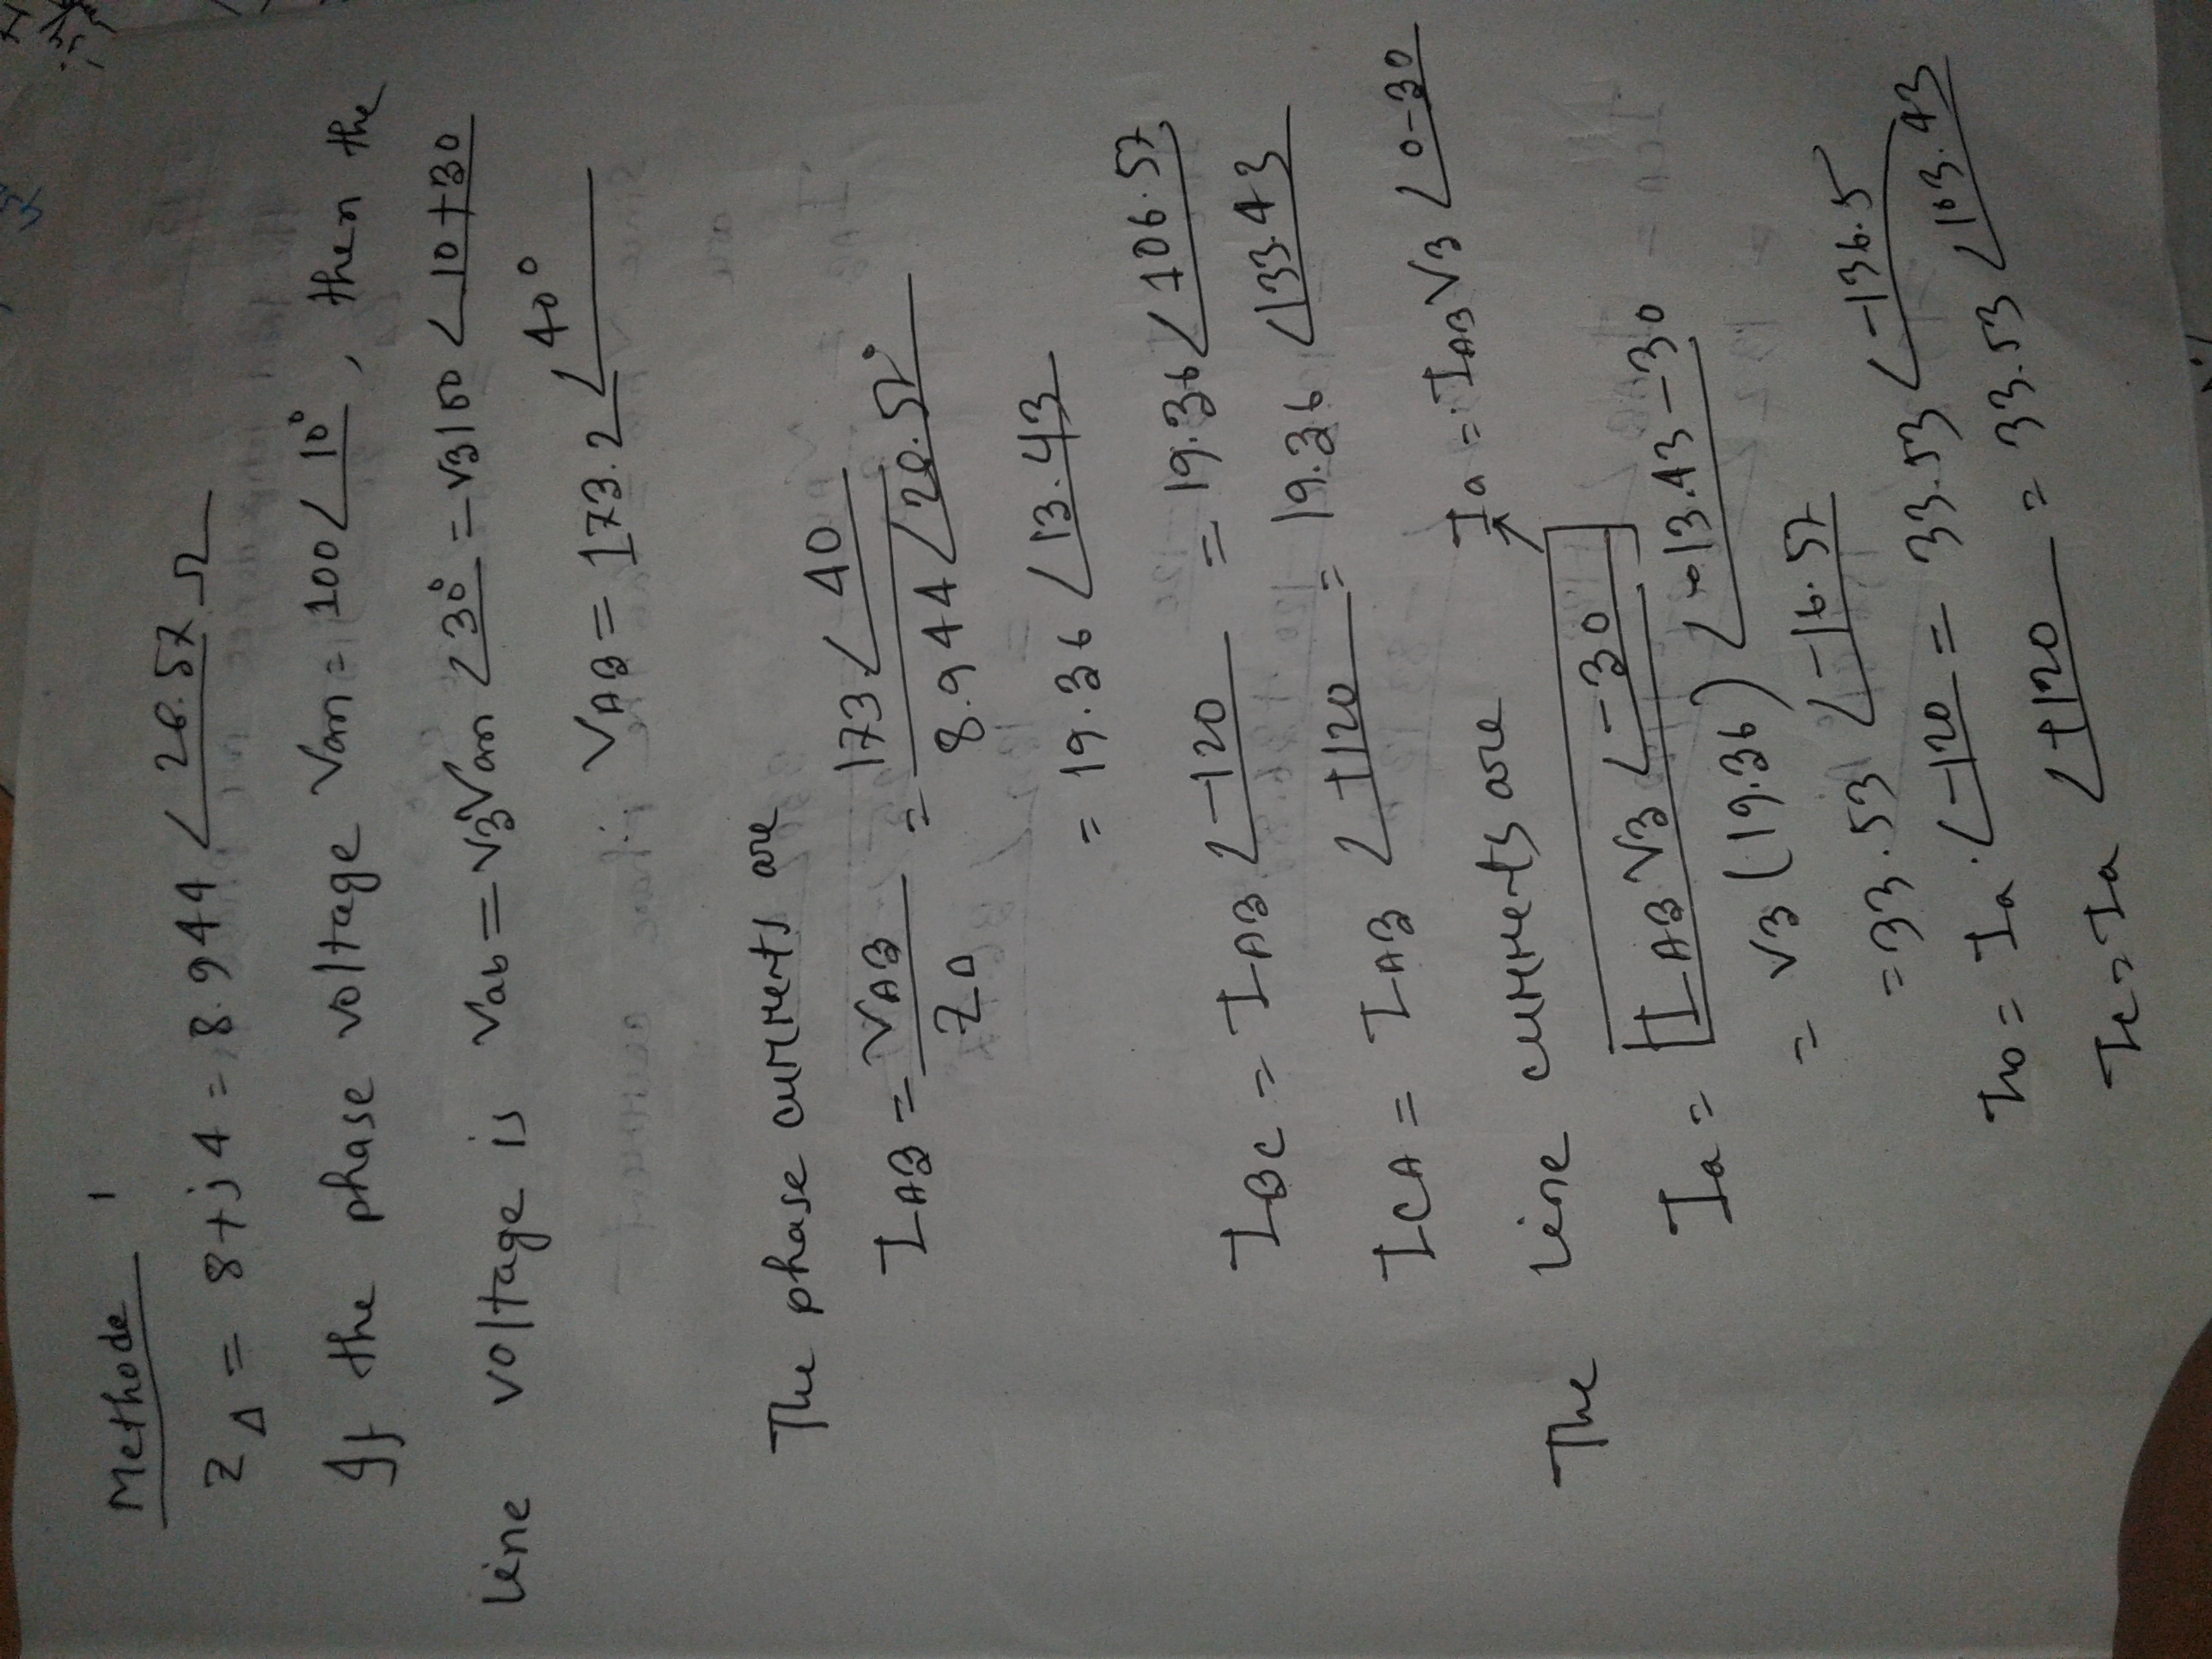 Methode 1
Z_Δ = 8+j4 = 8.944 ∠26.57 Ω
If the phase voltage Van = 100∠10°, then the
line voltage is Vab = √3Van ∠30° = √3 100 ∠10+30
∴ V_AB = 173.2 ∠40°
The phase currents are
I_AB = V_AB / Z_Δ = 173∠40 / 8.944∠26.57°
= 19.36 ∠13.43
I_BC = I_AB ∠-120 = 19.36 ∠106.57
I_CA = I_AB ∠+120 = 19.36 ∠133.43
The line currents are
Ia = I_AB √3 ∠0-30
Ia = I_AB √3 ∠-30
= √3 (19.36) ∠13.43-30
= 33.53 ∠-16.57
Ib = Ia ∠-120 = 33.53 ∠-136.5
Ic = Ia ∠+120 = 33.53 ∠103.43